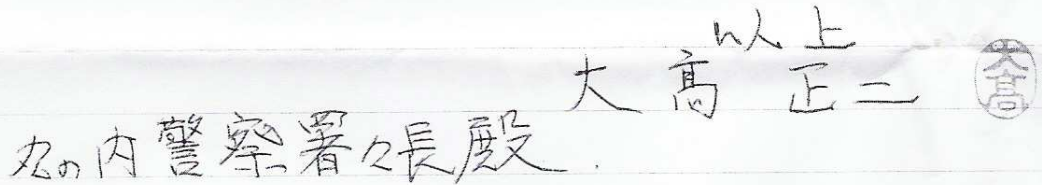 以上
大髙正二
大髙
丸の内警察署々長殿.